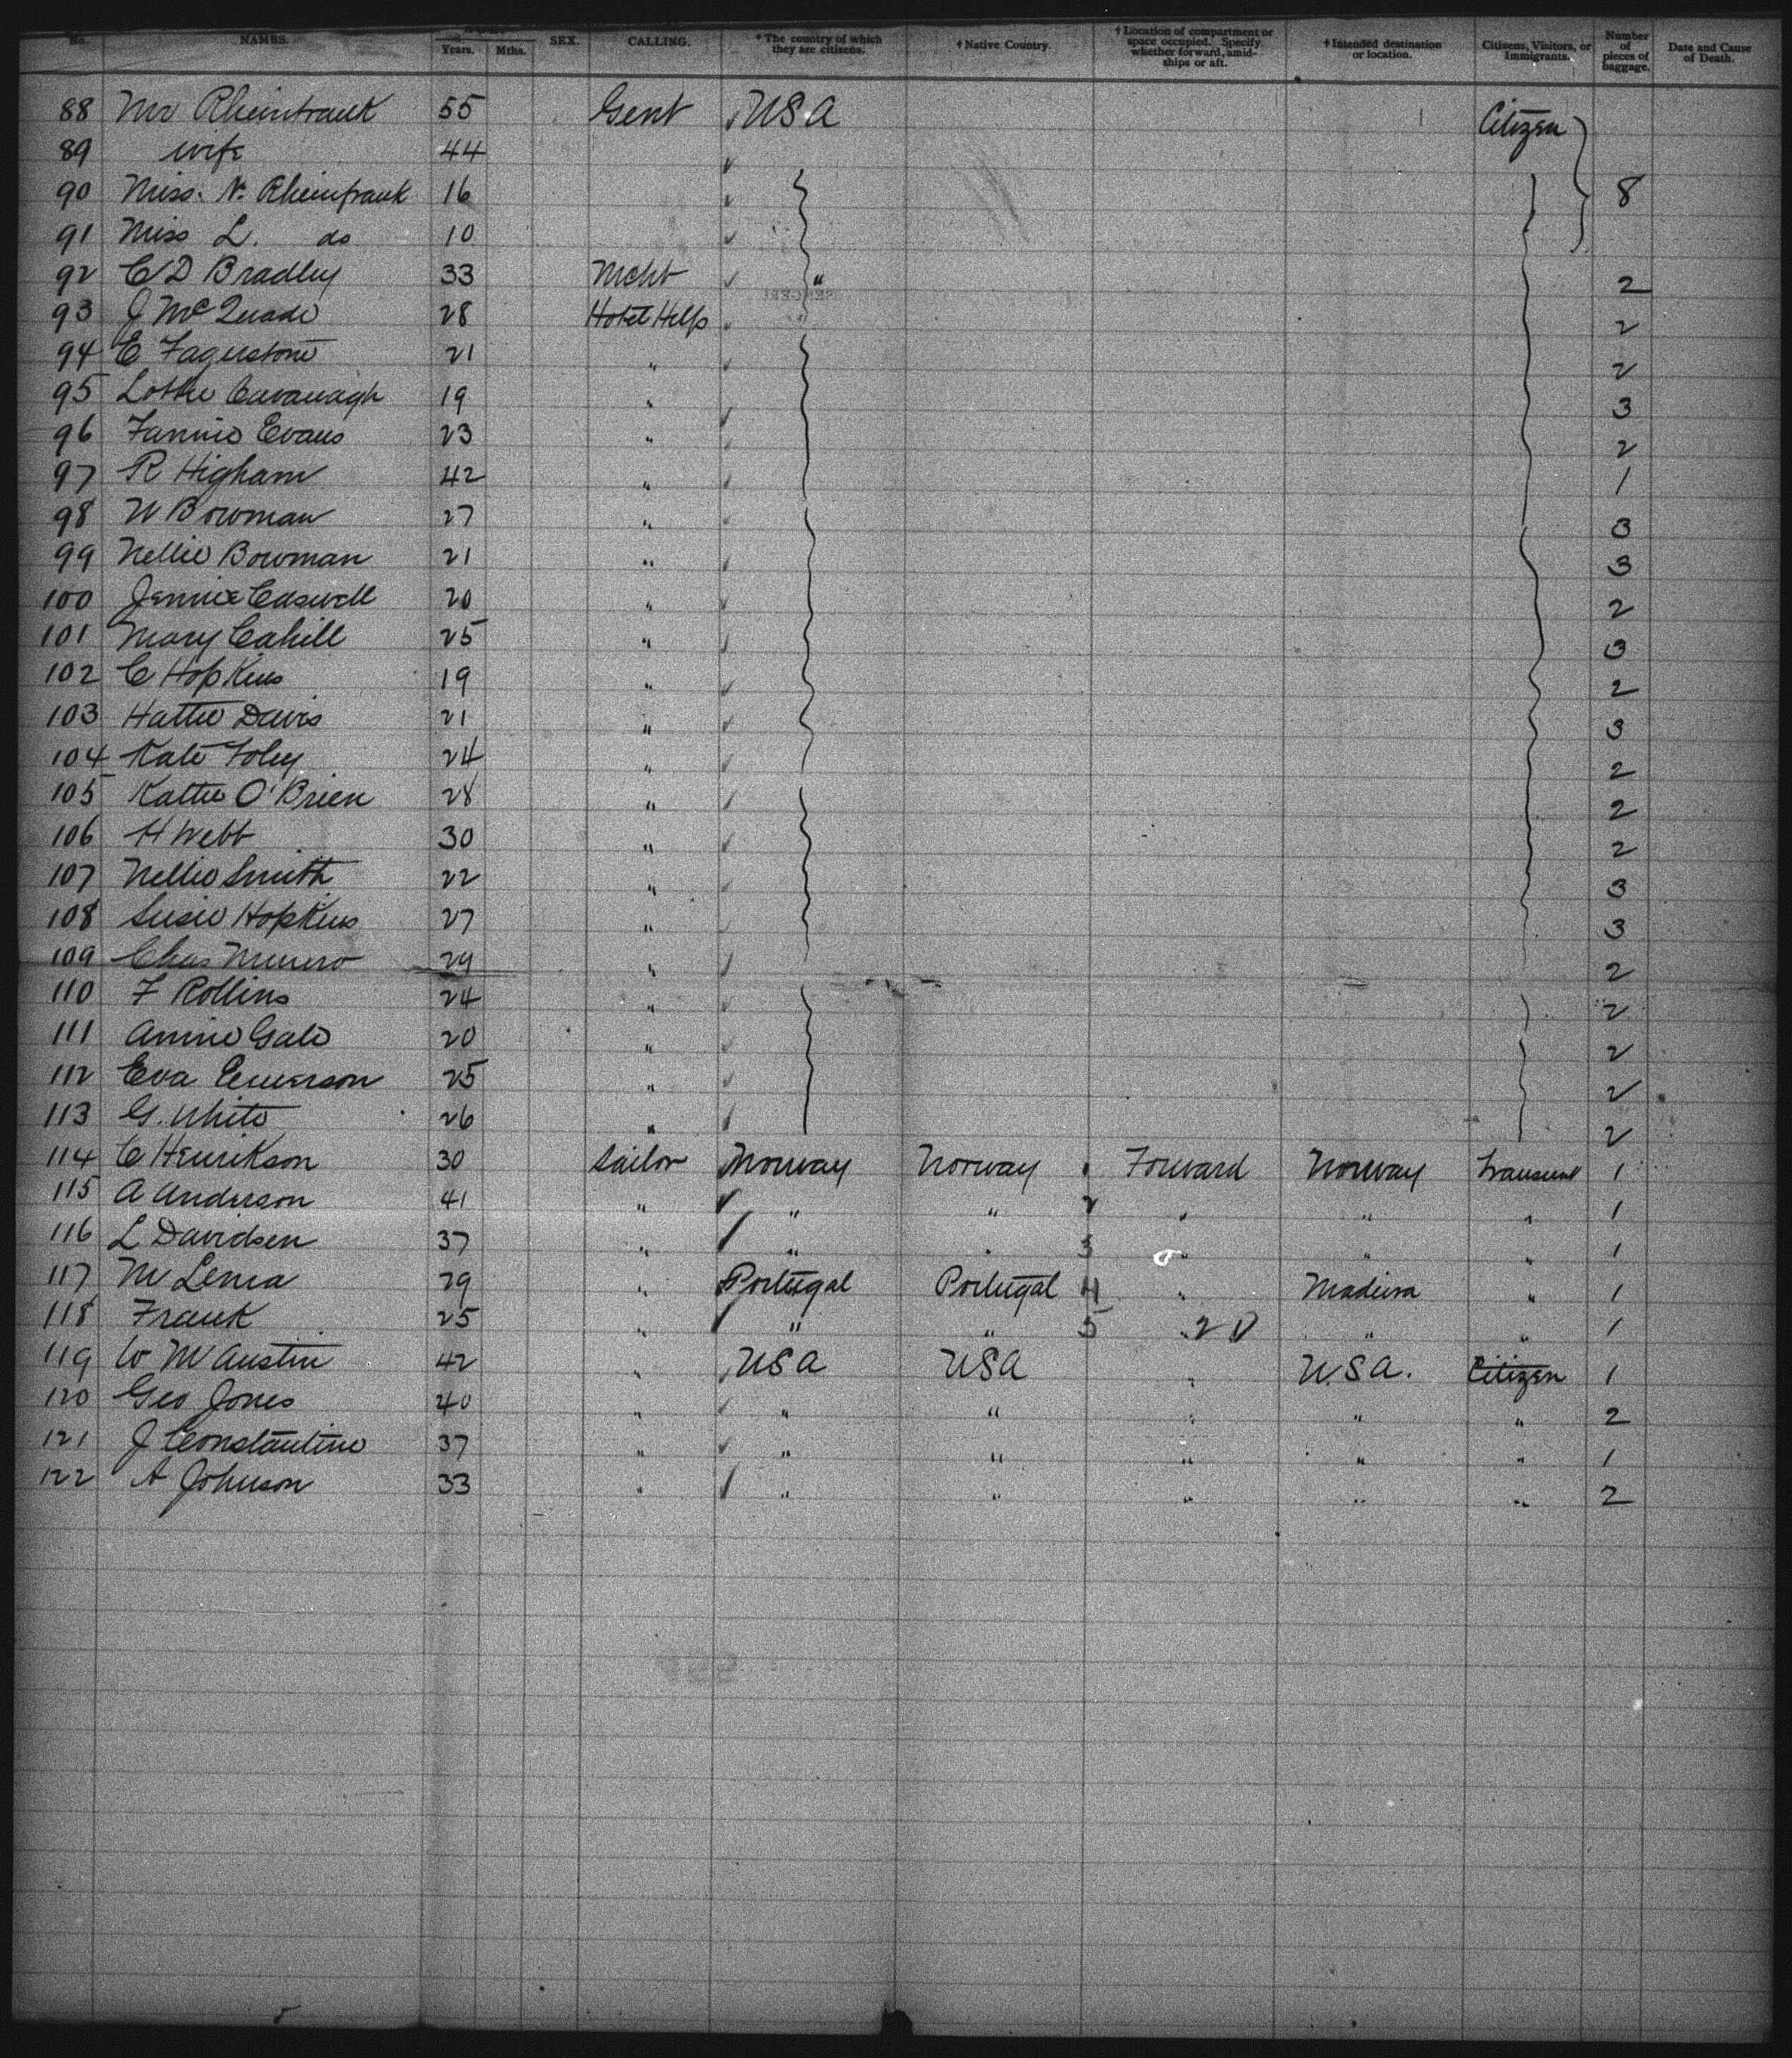 No. NAMES. Years. Mths. SEX. CALLING. * The country of which they are citizens. † Native Country. † Location of compartment or space occupied. Specify whether forward, amidships or aft. † Intended destination or location. Citizens, Visitors, or Immigrants. Number of pieces of baggage. Date and Cause of Death.
88 Mr Rheinfrank 55 Gent USA Citizen
89 wife 44
90 Miss. N. Rheinfrank 16 8
91 Miss L. do 10
92 C D Bradley 33 Mcht " 2
93 J McQuade 28 Hotel Help 2
94 E Fagerstone 21 " 2
95 Lottie Cavanagh 19 " 3
96 Fannie Evans 23 " 2
97 R Higham 42 " 1
98 W Bowman 27 " 3
99 Nellie Bowman 21 " 3
100 Jennie Caswell 20 " 2
101 Mary Cahill 25 " 3
102 C Hopkins 19 " 2
103 Hattie Davis 21 " 3
104 Kate Foley 24 " 2
105 Kattie O'Brien 28 " 2
106 H Webb 30 " 2
107 Nellie Smith 22 " 3
108 Susie Hopkins 27 " 3
109 Chas Munro 29 " 2
110 F Rollins 24 " 2
111 Annie Gale 20 " 2
112 Eva Emerson 25 " 2
113 G. White 26 " 2
114 C Henrikson 30 Sailor Norway Norway 1 Forward Norway Transient 1
115 A Anderson 41 " " " 2 " " " 1
116 L Davidsen 37 " " " 3 " " " 1
117 M Lema 29 " Portugal Portugal 4 " Madeira " 1
118 Frank 25 " " " 5 " " " 1
119 W M Austin 42 " USA USA " U.S.A. Citizen 1
120 Geo Jones 40 " " " " " " 2
121 J Constantine 37 " " " " " " 1
122 A Johnson 33 " " " " " " 2